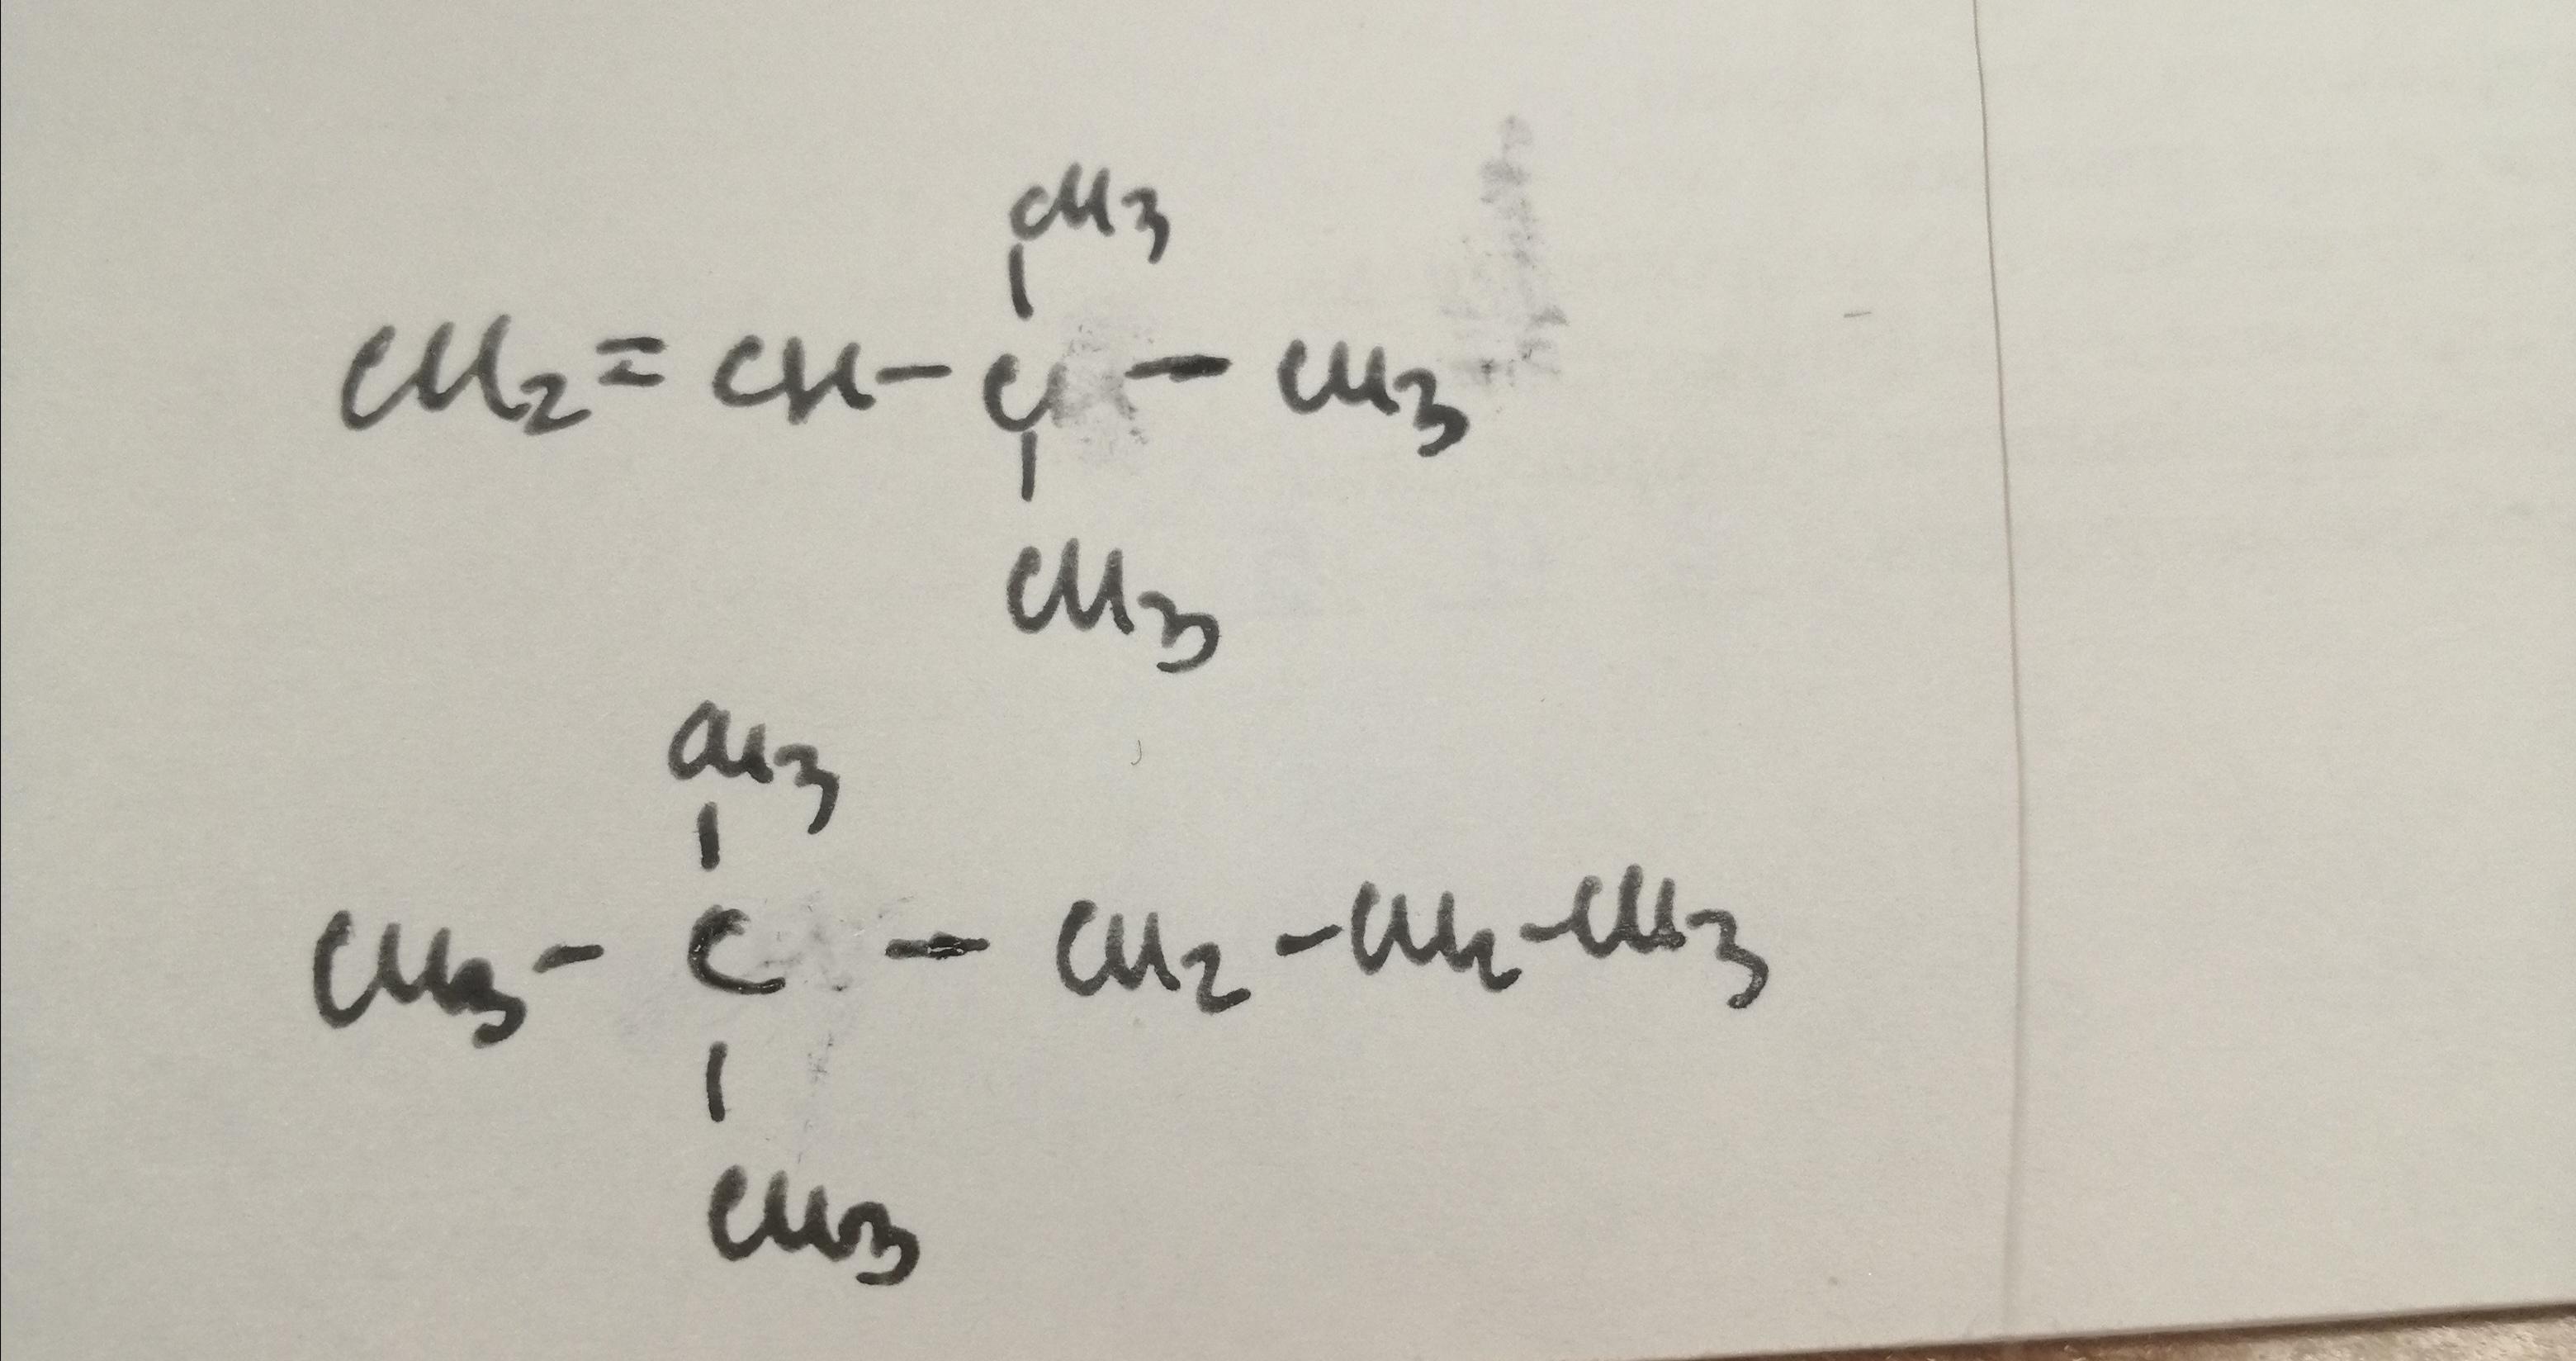 CH3
CH2=CH-C-CH3
CH3
CH3
CH3-C-CH2-CH2-CH3
CH3